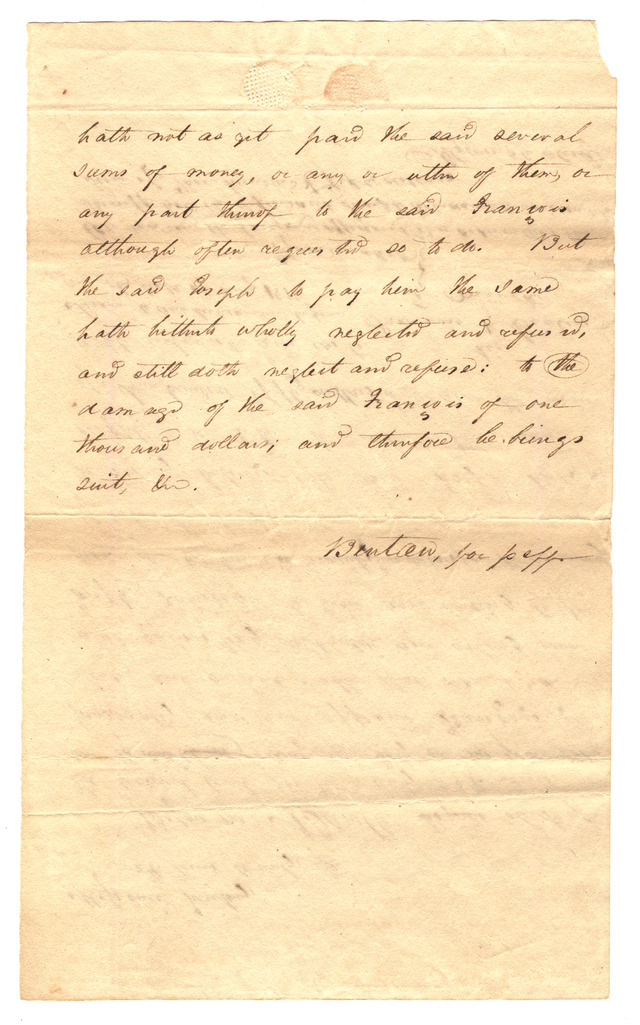 hath not as yet paid the said several
sums of money, or any or either of them, or
any part thereof to the said François
although often requested so to do. But
the said Joseph to pay him the same
hath hitherto wholly neglected and refused,
and still doth neglect and refuse: to the
damage of the said François of one
thousand dollars; and therefore he brings
suit, &c.
for peff